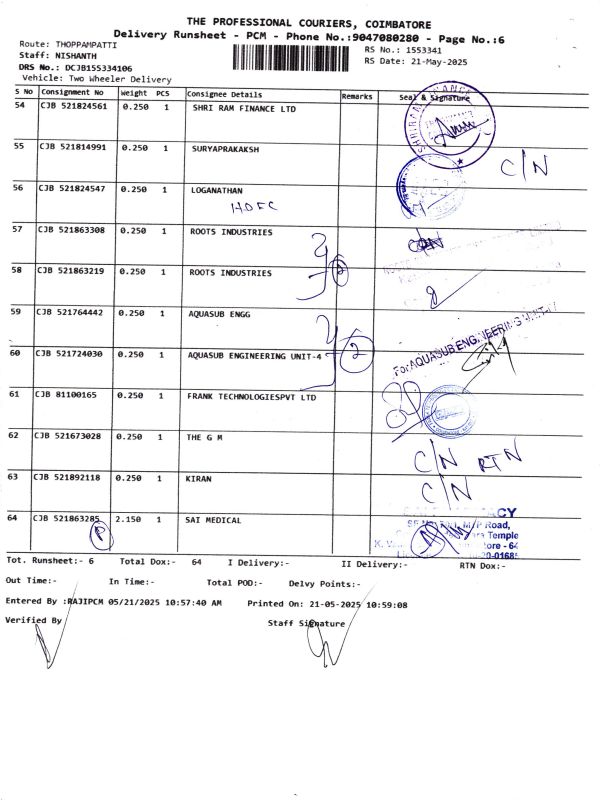 THE PROFESSIONAL COURIERS, COIMBATORE
Delivery Runsheet - PCM - Phone No.:9047080280 - Page No.:6
Route: THOPPAMPATTI RS No: 1553341
Staff: NISHANTH RS Date: 21-May-2025
DRS No.: DCJB155334106
Vehicle: Two Wheeler Delivery
S No Consignment No Weight PCS Consignee Details Remarks Seal & Signature
54 CJB 521824561 0.250 1 SHRI RAM FINANCE LTD
55 CJB 521814991 0.250 1 SURYAPRAKAKSH C/N
56 CJB 521824547 0.250 1 LOGANATHAN
HDFC
57 CJB 521863308 0.250 1 ROOTS INDUSTRIES
58 CJB 521863219 0.250 1 ROOTS INDUSTRIES 2
59 CJB 521764442 0.250 1 AQUASUB ENGG
For AQUASUB ENGINEERING UNIT-IV
60 CJB 521724030 0.250 1 AQUASUB ENGINEERING UNIT-4 2
61 CJB 81100165 0.250 1 FRANK TECHNOLOGIESPVT LTD
62 CJB 521673028 0.250 1 THE G M C/N RTN
63 CJB 521892118 0.250 1 KIRAN C/N
64 CJB 521863285 2.150 1 SAI MEDICAL
P
Road,
Temple
Tot. Runsheet:- 6 Total Dox:- 64 I Delivery:- II Delivery:- RTN Dox:-
Out Time:- In Time:- Total POD:- Delvy Points:-
Entered By :RAJIPCM 05/21/2025 10:57:40 AM Printed On: 21-05-2025 10:59:08
Verified By Staff Signature